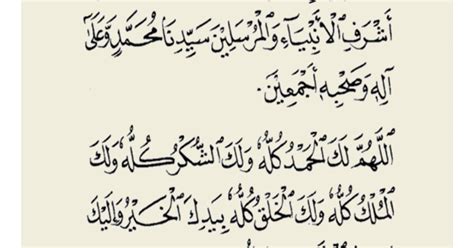 أَشْرَفِ ٱلْأَنْبِيَآءِ وَٱلْمُرْسَلِيْنَ سَيِّدِنَا مُحَمَّدٍ وَّعَلَىٰٓ
اٰلِهٖ وَصَحْبِهٖٓ أَجْمَعِيْنَ.
اَللّٰهُمَّ لَكَ ٱلْحَمْدُ كُلُّهُ، وَلَكَ ٱلشُّكْرُ كُلُّهُ، وَلَكَ
ٱلْمُلْكُ كُلُّهُ، وَلَكَ ٱلْخَلْقُ كُلُّهُ، بِيَدِكَ ٱلْخَيْرُ وَإِلَيْكَ